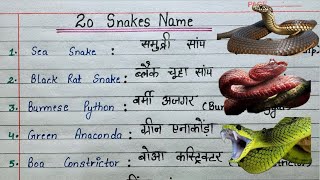 20 Snakes Name
1. Sea Snake : समुद्री सांप
2. Black Rat Snake : ब्लैक चूहा सांप
3. Burmese Python : बर्मी अजगर (Bur
4. Green Anaconda : ग्रीन एनाकोंडा
5. Boa Constrictor : बोआ कंस्ट्रिक्टर